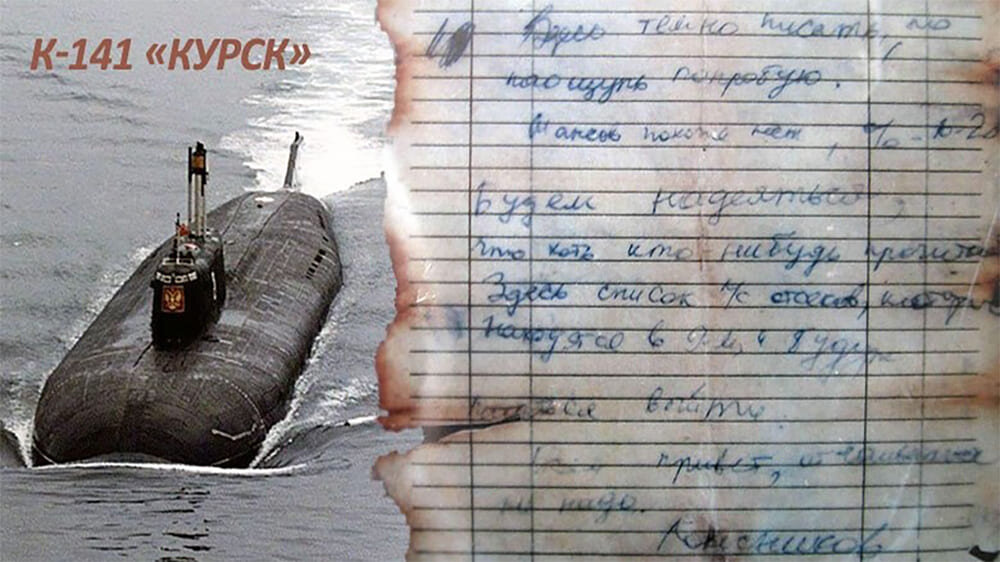 К-141 «КУРСК»
Здесь темно писать, но
наощупь попробую.
Шансов похоже нет, % 10-20
Будем надеяться,
что хоть кто нибудь прочитает
Здесь список л/с отсеков, которые
находятся в 9-м и будут
пытаться выйти.
привет, отчаиваться
не надо.
Колесников